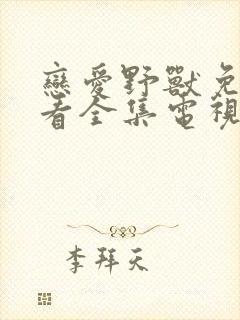 戀愛野獸免
看全集電視
李拜天